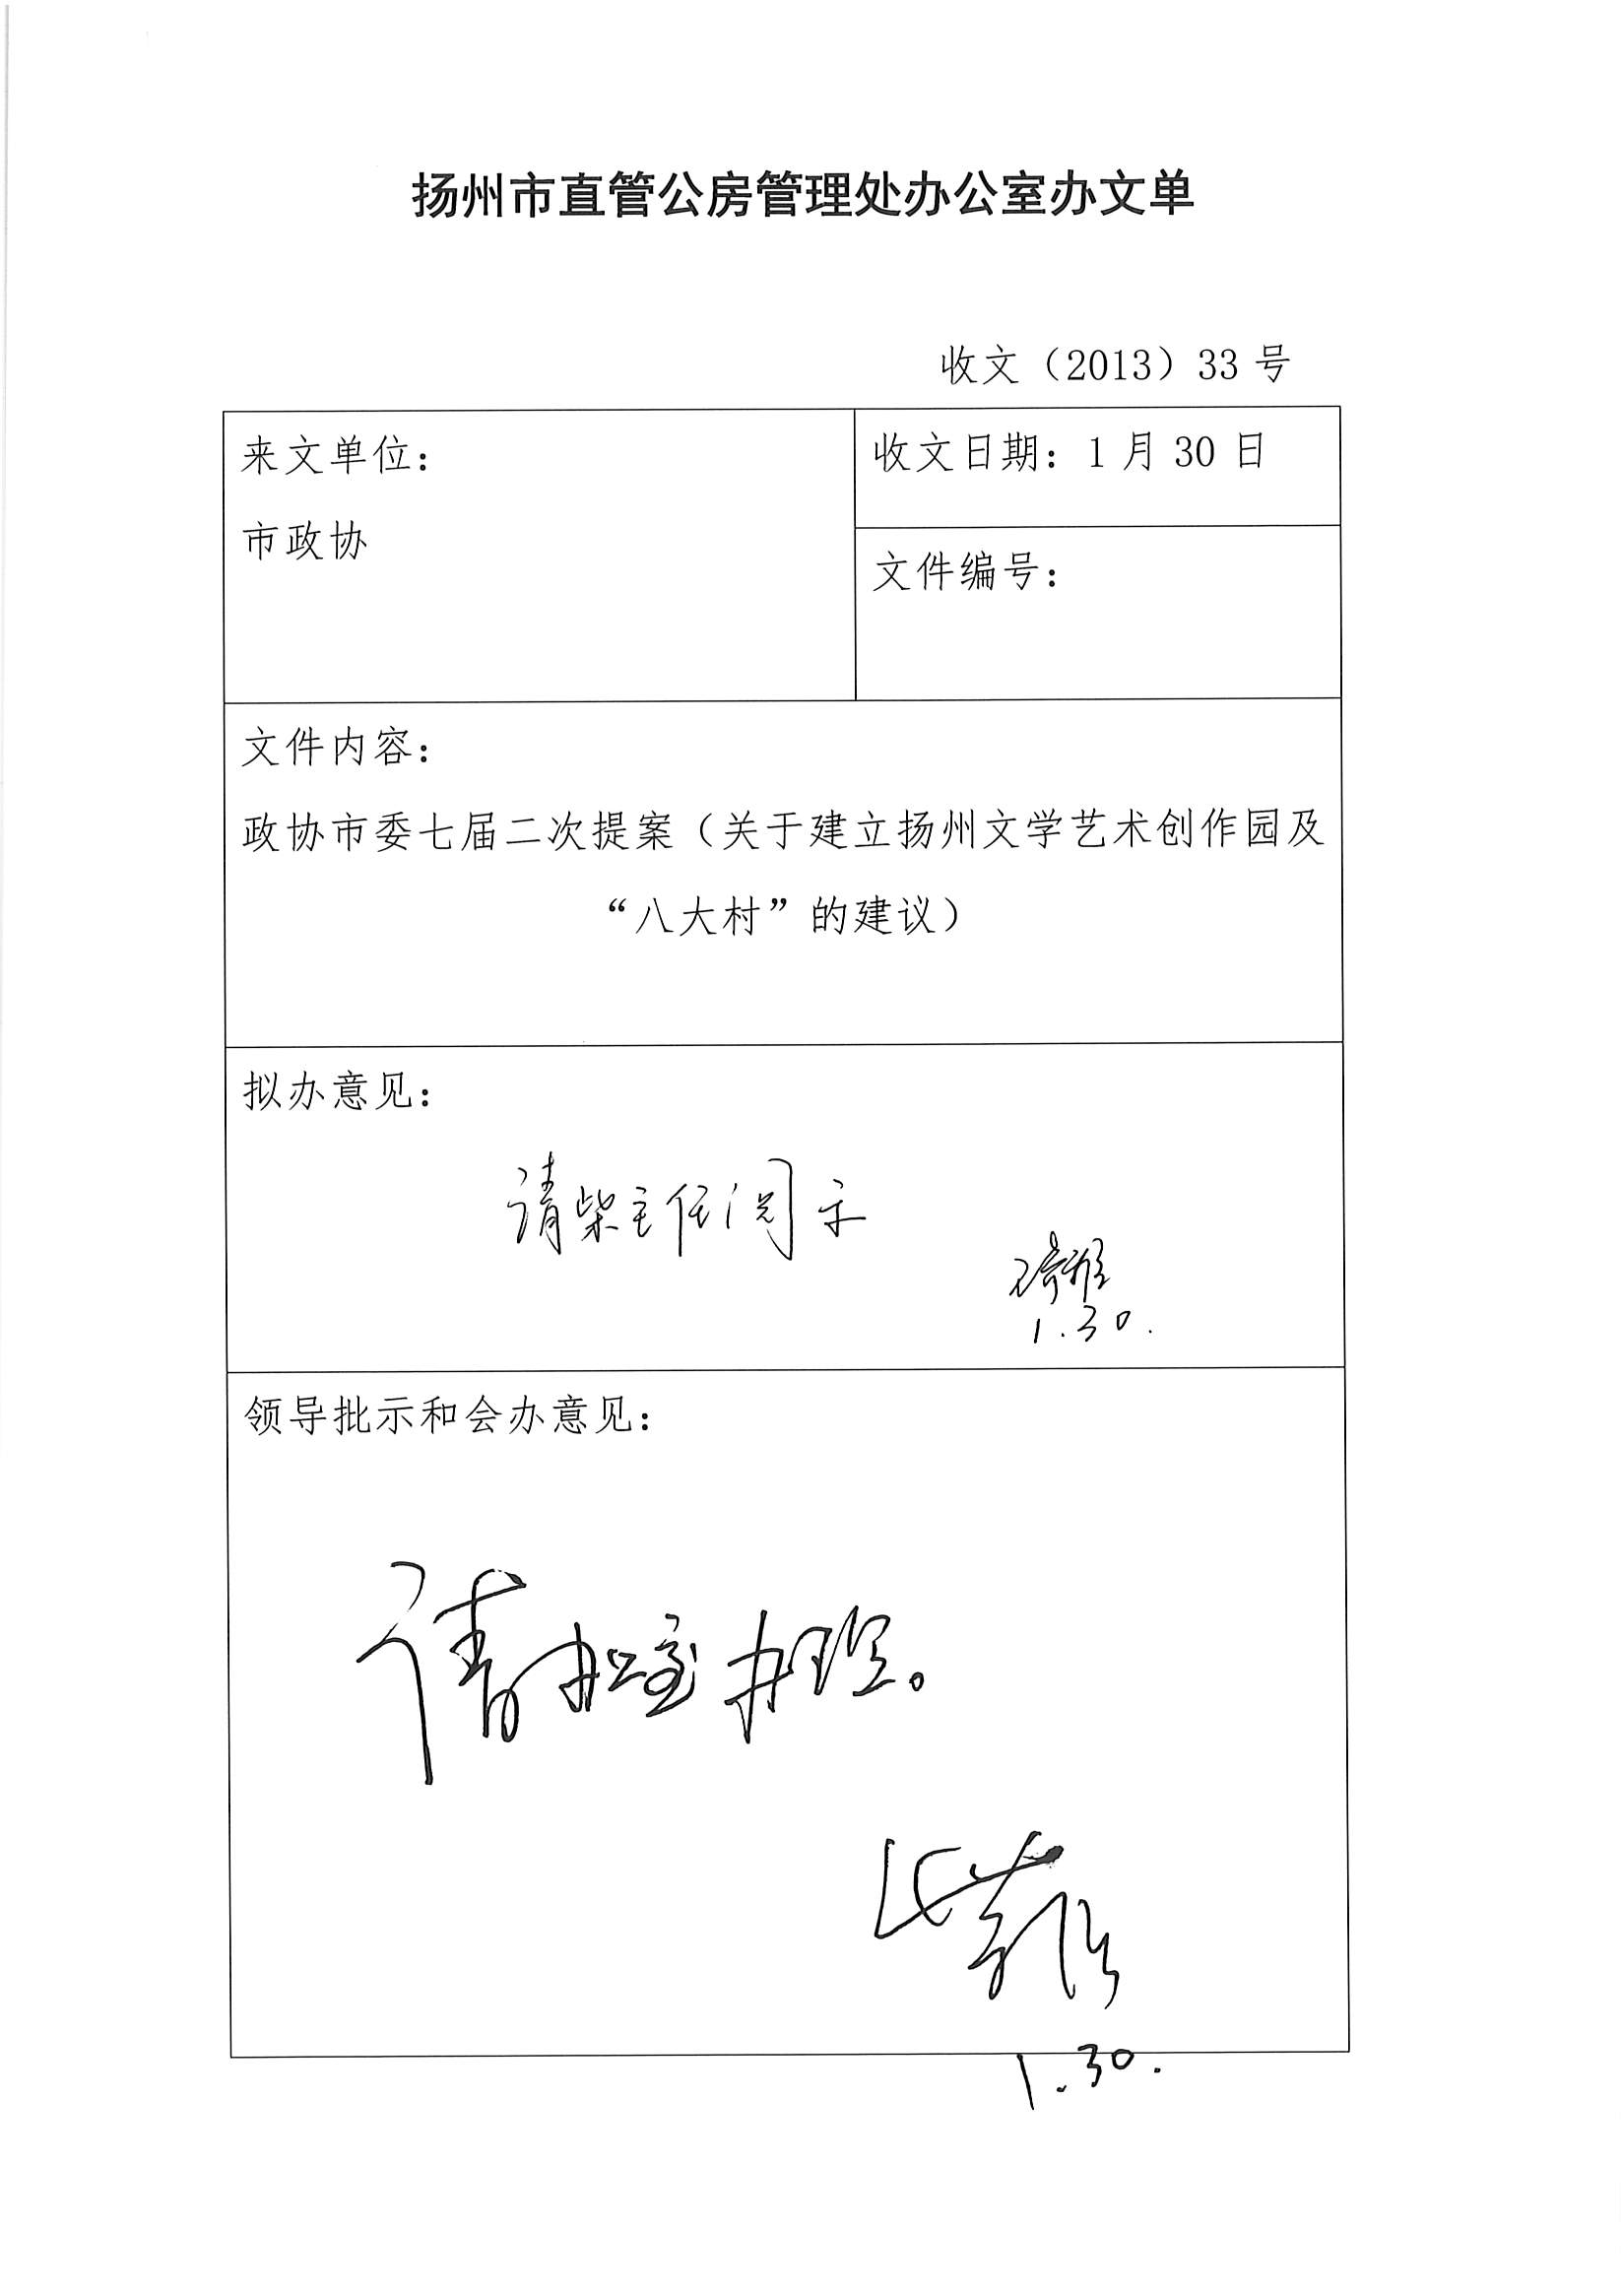 扬州市直管公房管理处办公室办文单
收文（2013）33 号
来文单位：
市政协
收文日期：1 月 30 日
文件编号：
文件内容：
政协市委七届二次提案（关于建立扬州文学艺术创作园及
“八大村”的建议）
拟办意见：
请柴主任阅示
1.30.
领导批示和会办意见：
请办公室办理。
1.30.